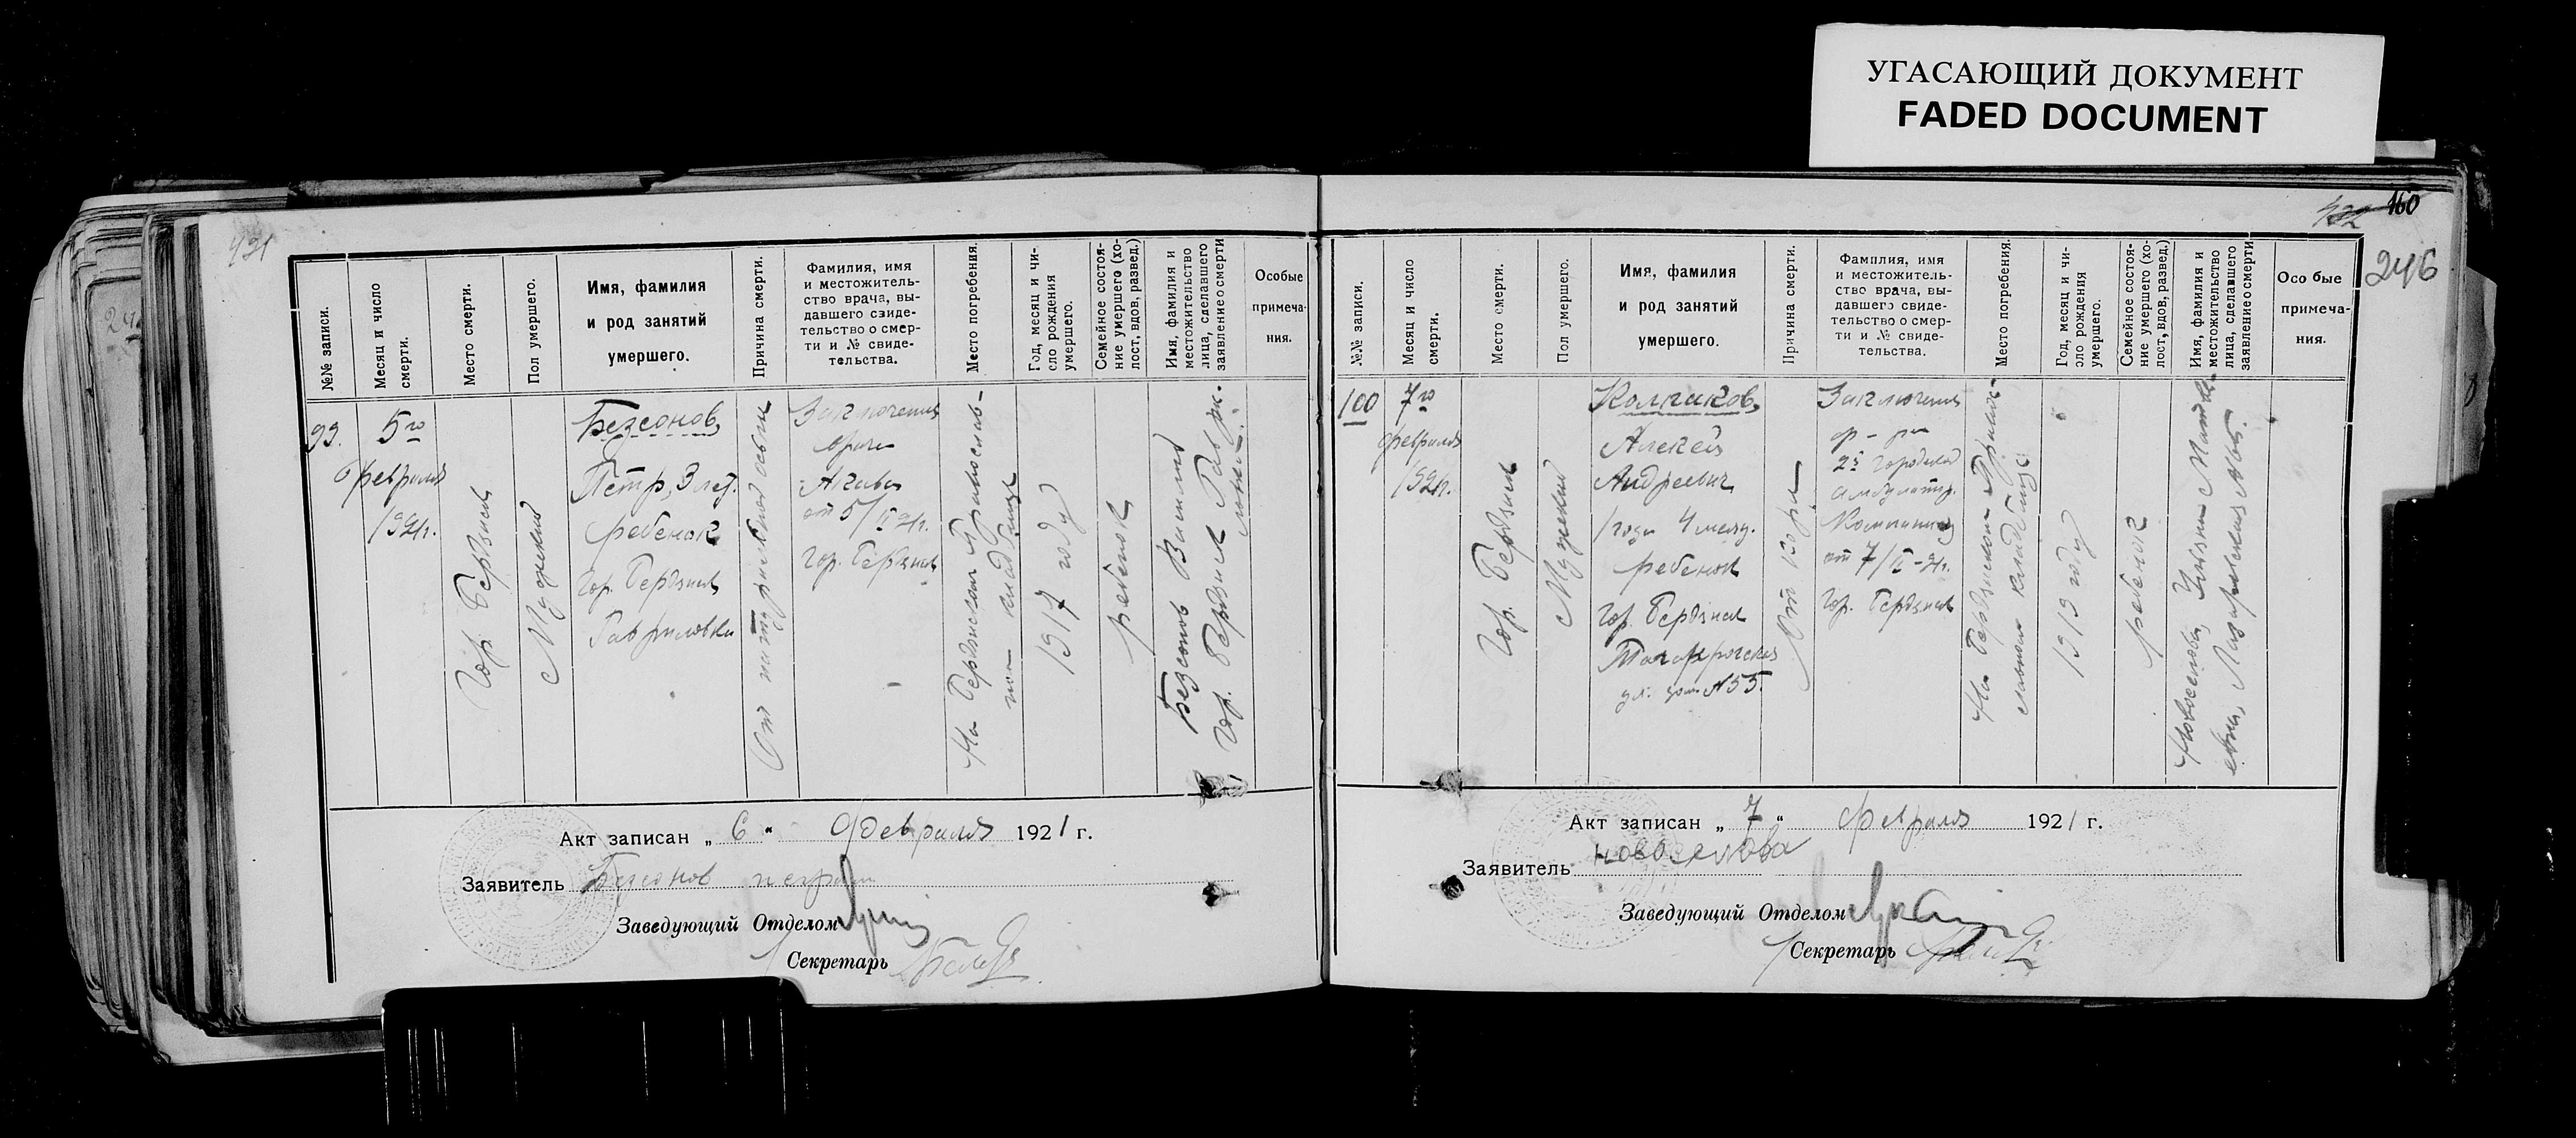 УГАСАЮЩИЙ ДОКУМЕНТ
FADED DOCUMENT
421
№№ записи.
Месяц и число
смерти.
Место смерти.
Пол умершего.
Имя, фамилия
и род занятий
умершего.
Причина смерти.
Фамилия, имя
и местожитель-
ство врача, вы-
давшего свиде-
тельство о смер-
ти и № свиде-
тельства.
Место погребения.
Год, месяц и чи-
сло рождения
умершего.
Семейное состоя-
ние умершего (хо-
лост, вдов, развед.)
Имя, фамилия и
местожительство
лица, сделавшего
заявление о смерти
Особые
примеча-
ния.
99.
5го
февраля
1921г.
Гор. Бердянск
Мужской
Безсонов,
Петр, 3 лет.
ребенок
Гор. Бердянск
Гавриловка
От
Заключения
врача
от 5/II 21г.
Гор. Бердянск
На Бердянском Православ-
ном кладбище
1917 году
ребенок
Безсонов
Гор. Бердянск
Акт записан „ 6 " февраля 1921 г.
Заявитель Безсонов
Заведующий Отделом
Секретарь
160
246
№№ записи.
Месяц и число
смерти.
Место смерти.
Пол умершего.
Имя, фамилия
и род занятий
умершего.
Причина смерти.
Фамилия, имя
и местожитель-
ство врача, вы-
давшего свиде-
тельство о смер-
ти и № свиде-
тельства.
Место погребения.
Год, месяц и чи-
сло рождения
умершего.
Семейное состоя-
ние умершего (хо-
лост, вдов, развед.)
Имя, фамилия и
местожительство
лица, сделавшего
заявление о смерти
Осо бые
примеча-
ния.
100
7го
февраля
1921г.
Гор. Бердянск
Мужской
Колпаков,
Алексей
Андреевич
1 года 4 месяц.
ребенок
Гор. Бердянск
Таганрогская
ул. дом №55.
От кори
Заключения
2й Городской
амбулатор.
от 7/II-21г.
Гор. Бердянск
На Бердянском Право-
славном кладбище
1919 году
ребенок
Новоселова, Ульяна Матве-
евна,
Акт записан „ 7 " февраля 1921 г.
Заявитель Новоселова
Заведующий Отделом
Секретарь